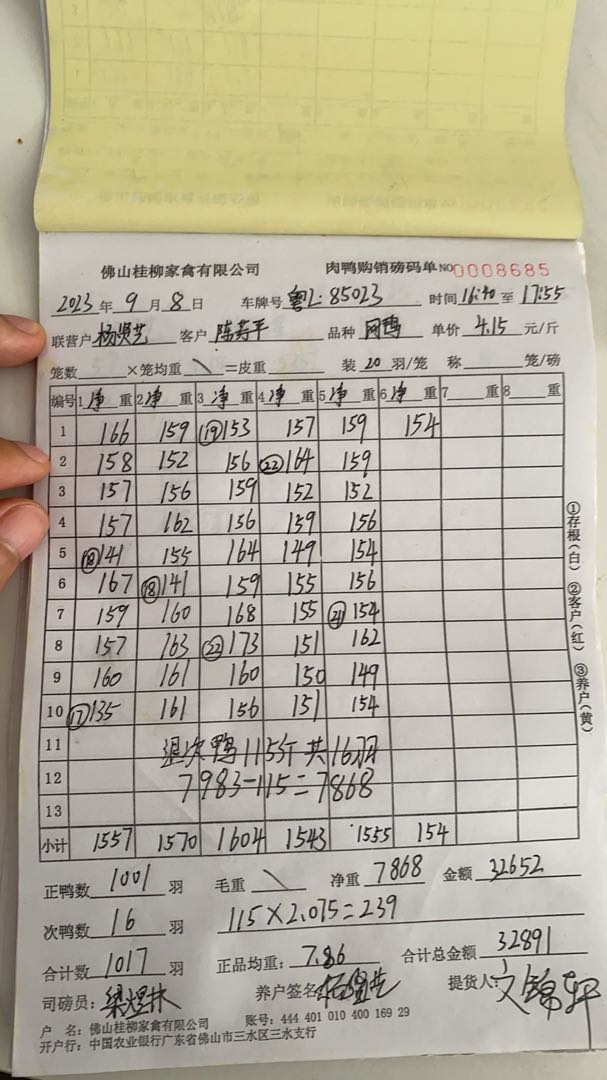 佛山桂柳家禽有限公司 肉鸭购销磅码单 NO 0008685
2023 年 9 月 8 日 车牌号 粤L:85023 时间 16:40 至 17:55
联营户 杨贤艺 客户 陈寿平 品种 网鸭 单价 4.15 元/斤
笼数 ×笼均重 \ =皮重 装 20 羽/笼 称 笼/磅
编号 1 净 重 2 净 重 3 净 重 4 净 重 5 净 重 6 净 重 7 重 8 重
1 166 159 ⑲153 157 159 154
2 158 152 156 ㉒164 159
3 157 156 159 152 152
4 157 162 156 159 156
5 ⑱141 155 164 149 154
6 167 ⑱141 159 155 156
7 159 160 168 155 ㉑154
8 157 163 ㉒173 151 162
9 160 161 160 150 149
10 ⑰135 161 156 151 154
11 退次鸭115斤共16羽
12 7983-115=7868
13
小计 1557 1570 1604 1543 1555 154
正鸭数 1001 羽 毛重 \ 净重 7868 金额 32652
次鸭数 16 羽 115×2.075=239
合计数 1017 羽 正品均重: 7.86 合计总金额 32891
司磅员: 梁煜林 养户签名 提货人:
户 名: 佛山桂柳家禽有限公司 账号: 444 401 010 400 169 29
开户行: 中国农业银行广东省佛山市三水区三水支行
①存根(白) ②客户(红) ③养户(黄)